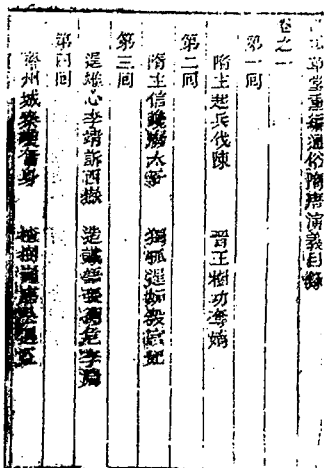 草堂重編通俗隋唐演義目錄
卷之一
第一回
隋主起兵伐陳 晉王樹功奪嫡
第二回
隋主信讒廢太子 獨孤逞妬殺宮妃
第三回
逞雄心李靖訴西嶽 造讖語張衡危李淵
第四回
齊州城豪傑奮身 楂樹崗唐公遇盜